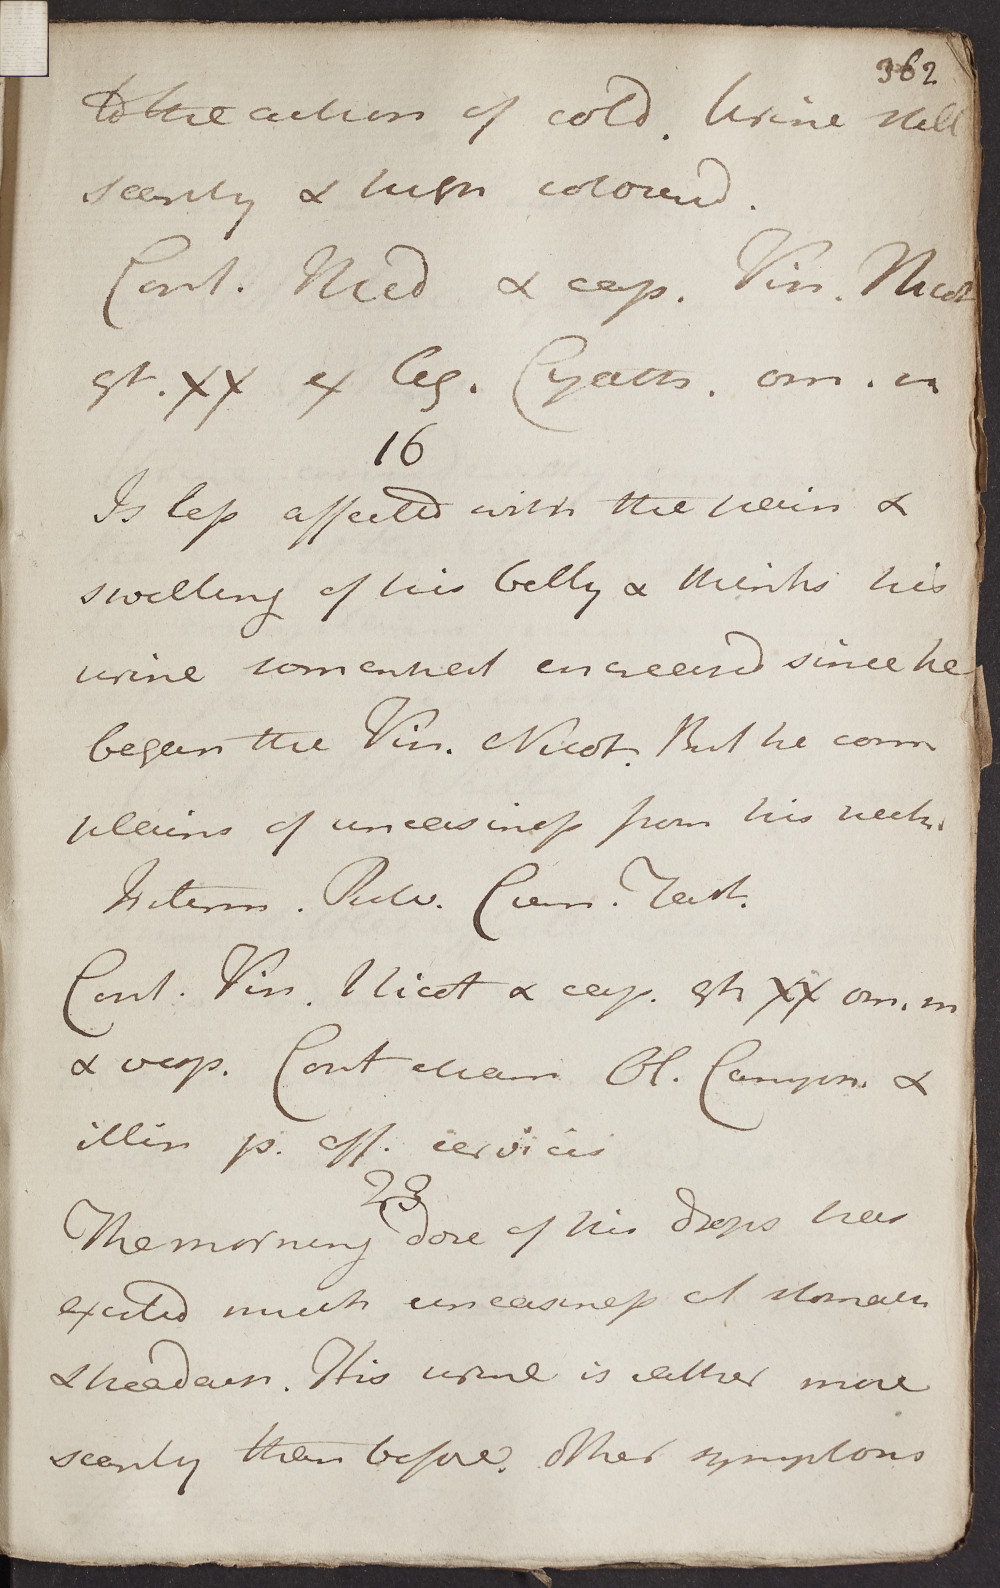 362
to the action of cold. Urine still
scanty & high coloured.
Cont. Med & cap. Vin. Nicot
gt. XX ex Cyath. om. n
16
Is less affected with the pain &
swelling of his belly & thinks his
urine somewhat encreased since he
began the Vin. Nicot. But he com
plains of uneasiness from his neck.
Interm. Pulv. Crem. Tart.
Cont. Vin. Nicot & cap. gtt XX om. m
& vesp. Cont etiam Ol. Camphor. &
illin p. aff. cervicis
23
The morning dose of his drops has
excited much uneasiness at stomach
& headach. His urine is rather more
scanty than before. Other symptoms